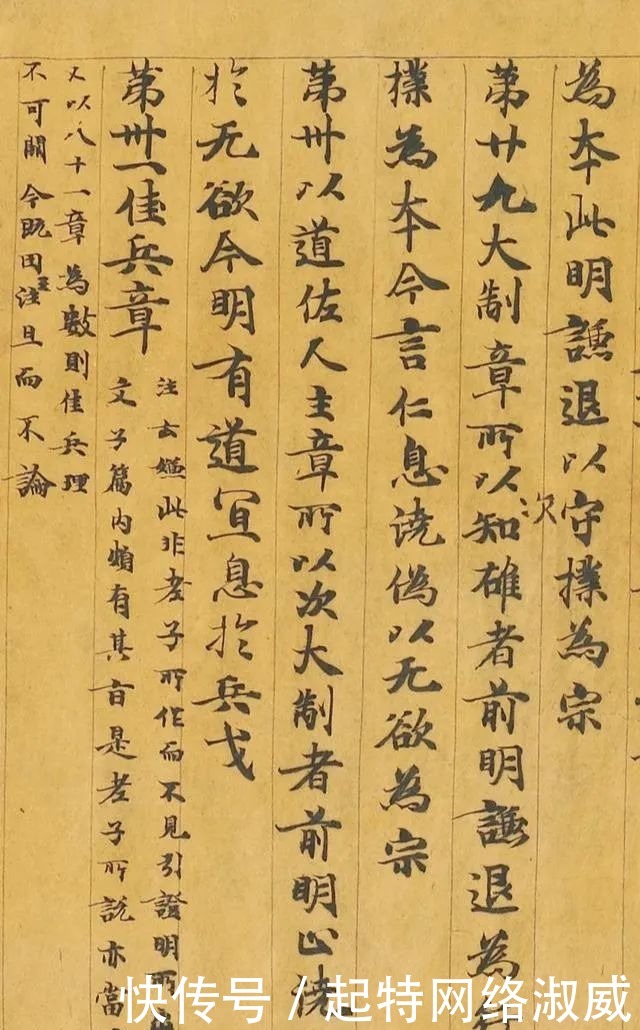 為本此明謙退以守撲為宗
第廿九大制章所以次知雄者前明謙退為
撲為本今言仁息澆偽以无欲為宗
第卅以道佐人主章所以次大制者前明止澆
於无欲今明有道宜息於兵戈
第卅一佳兵章
注云嫌此非老子所作而不見引證明所
文子篇内頗有其旨是老子所說亦當
又以八十一章為數則佳兵理
不可關今既因王注且而不論
快传号/起特网络淑威